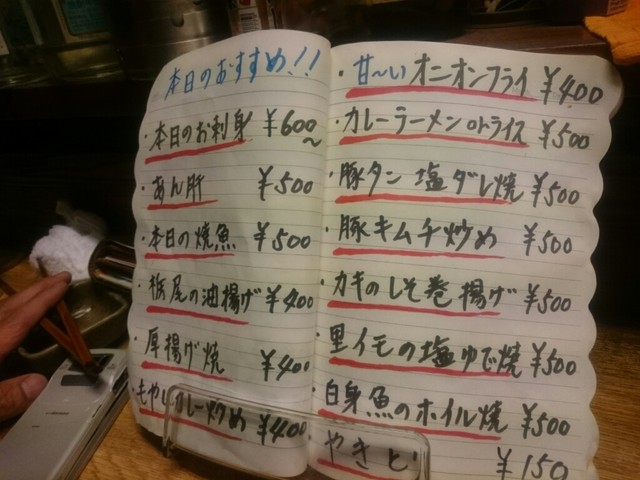 本日のおすすめ!!
・本日のお刺身 ¥600~
・あん肝 ¥500
・本日の焼魚 ¥500
・栃尾の油揚げ ¥400
・厚揚げ焼 ¥400
・もやしカレー炒め ¥400
・甘~いオニオンフライ ¥400
・カレーラーメンorライス ¥500
・豚タン塩ダレ焼 ¥500
・豚キムチ炒め ¥500
・カキのしそ巻揚げ ¥500
・里イモの塩ゆで焼 ¥500
・白身魚のホイル焼 ¥500
・やきとり ¥150